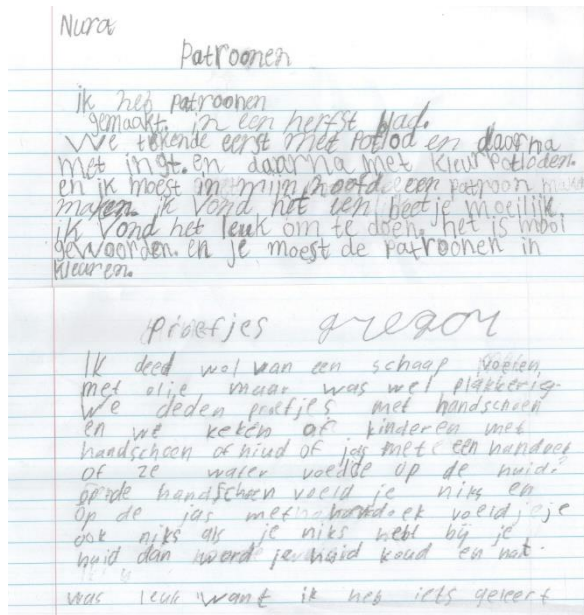 Nura
Patroonen
ik heb patroonen
gemaakt. in een herfst blad.
We tekende eerst met potlod en daarna
met ingt. en daarna met kleurpotloden.
en ik moest in mijn hoofd een patroon
maken. ik vond het een beetje moeilijk.
ik vond het leuk om te doen. het is mooi
gewoorden. en je moest de patroonen in
kleuren.
proefjes gregor
Ik deed wol van een schaap voelen
met olie maar was wel plakkerig
we deden proefjes met handschoen
en we keken of kinderen met
handschoen of huid of jas met een handoek
of ze water voelde op de huid?
op de handschoen voeld je niks en
op de jas met handoek voeld je
ook niks als je niks hebt bij je
huid dan woord je huid koud en nat.
was leuk want ik heb iets geleert